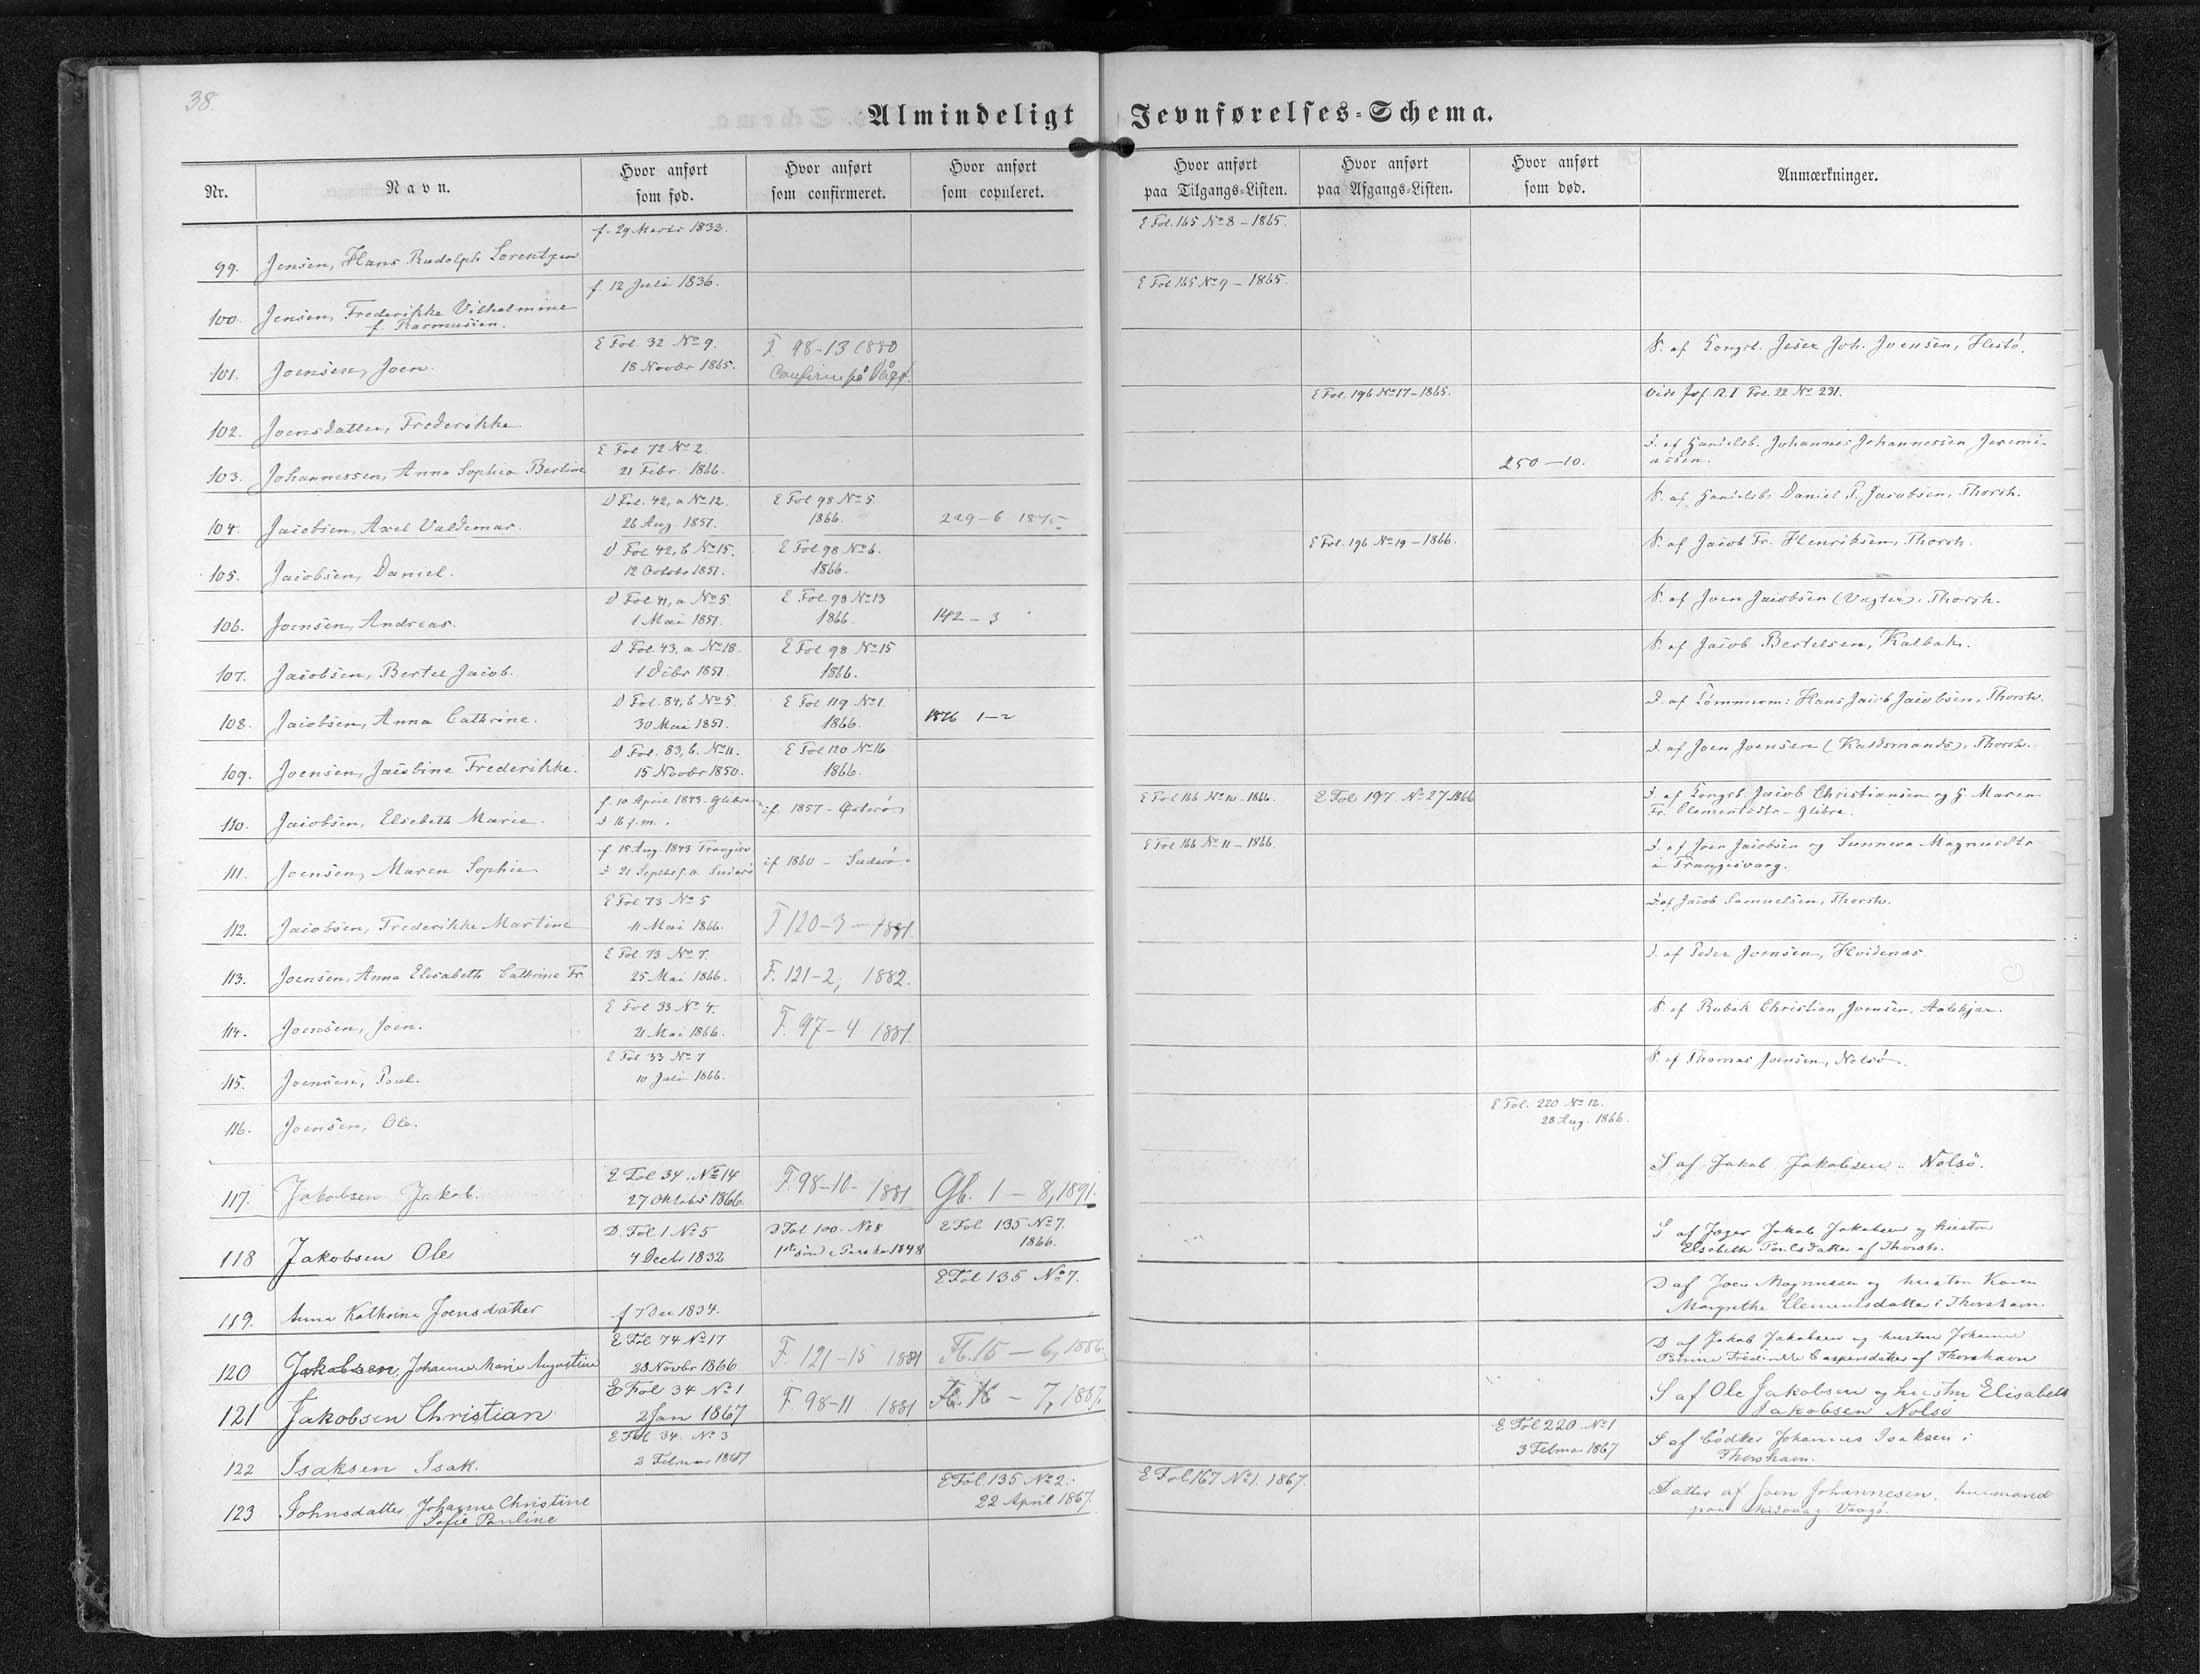 38.
Almindeligt Jevnførelses-Schema.
Nr.
Navn.
Hvor anført som fød.
Hvor anført som confirmeret.
Hvor anført som copuleret.
Hvor anført paa Tilgangs-Listen.
Hvor anført paa Afgangs-Listen.
Hvor anført som død.
Anmærkninger.
f. 29 Marts 1832. E Fol. 165 No 8 - 1865.
99. Jensen, Hans Rudolph Lorentzen
f. 12 Juli 1836. E Fol 165 No 9 - 1865.
100. Jensen, Frederikke Vilhelmine
f. Rasmussen.
E Fol. 32 No 9. F 98-13 1880 S. af Joh. Joensen, Hestø.
101. Joensen, Joen. 18 Novbr 1865. Confirm på Vågø.
E Fol. 196 No 17 - 1865. vide Fol. 22 No 231.
102. Joensdatter, Frederikke
E Fol 72 No 2. D. af Handelsb. Johannes Johannessen Jeremi-
103. Johannessen, Anna Sophia Bertine 21 Febr. 1866. 250-10. assen.
D Fol. 42, a No 12. E Fol 98 No 5. S. af Handelsb. Daniel P. Jacobsen, Thorsh.
104. Jacobsen, Axel Valdemar. 26 Aug. 1851. 1866. 229-6 1875
D Fol 42, b No 15. E Fol 98 No 6. E Fol. 196 No 19 - 1866. S. af Jacob Fr. Henriksen, Thorsh.
105. Jacobsen, Daniel. 12 Octobr 1851. 1866.
D Fol 41, a No 5. E Fol. 98 No 13 S. af Joen Jacobsen (Vagter), Thorsh.
106. Joensen, Andreas. 1 Mai 1851. 1866. 142-3
D Fol. 43, a No 18. E Fol 98 No 15 S. af Jacob Bertelsen, Kalbak.
107. Jacobsen, Bertel Jacob. 1 Debr 1851. 1866.
D Fol. 84, b No 5. E Fol 119 No 1. D. af Tømmerm: Hans Jacob Jacobsen, Thorsh.
108. Jacobsen, Anna Cathrine. 30 Mai 1851. 1866. 1876 1-2
D Fol. 83, b. No 11. E Fol 120 No 16 D. af Joen Joensen (Kaldsmands), Thorsh.
109. Joensen, Jacobine Frederikke. 15 Novbr 1850. 1866.
f. 10 April 1843 - Glibre cf. 1857 - Østerø E Fol 166 No 10 - 1866. E Fol 197 No 27 1866 D. af Jacob Christiansen og H. Maren
110. Jacobsen, Elsebeth Marie. d 16 s.m. Fr. Clementsdtr - Glibre.
f 15 Aug. 1843 cf 1860 - Suderø E Fol 166 No 11 - 1866. D. af Joen Jacobsen og Sunneva Magnusdtr
111. Joensen, Maren Sophie i Trangisvaag.
E Fol 73 No 5 D. af Jacob Samuelsen, Thorsh.
112. Jacobsen, Frederikke Martine 11 Mai 1866. F 120-3 - 1881.
E Fol 73 No 7. D. af Peder Joensen, Hvidenæs.
113. Joensen, Anna Elisabeth Cathrine Fr. 25 Mai 1866. F. 121-2, 1882.
E Fol 33 No 4. S. af Rubek Christian Joensen,
114. Joensen, Joen. 21 Mai 1866. F. 97-4 1881.
E Fol 33 No 7 S. af Thomas Joensen, Nolsø.
115. Joensen, Poul. 10 Juli 1866.
E Fol. 220 No 12.
116. Joensen, Ole. 28 Aug. 1866.
E Fol 34. No 14 S af Jakob Jakobsen Nolsø.
117. Jakobsen Jakob. 27 Oktober 1866. F. 98-10- 1881 Gb. 1 - 8, 1891.
D. Fol 1 No 5 D Fol 100. No 8 E Fol 135 No 7. S af Jæger Jakob Jakobsen og hustru
118 Jakobsen Ole 4 Decbr 1832 1848 1866. Elsebeth Poulsdatter af Thorsh.
E Fol 135 No 7. D af Joen Magnussen og hustru Karen
119. Anna Kathrine Joensdatter f 7 Dec 1834. Margrethe Clementsdatter i Thorshavn.
E Fol 74 No 17 D af Jakob Jakobsen og hustru Johanne
120 Jakobsen, Johanne Marie Augustine 28 Novbr 1866 F. 121-15 1881 Fb. 15 - 6, 1886. Caspersdatter af Thorshavn
E Fol 34 No 1 S af Ole Jakobsen og hustru Elisabeth
121 Jakobsen Christian 2 Jan 1867 F. 98-11 1881 Fb. 16 - 7, 1887. Jakobsen Nolsø
E Fol 34. No 3 E Fol 220. No 1 S af bødker Johannes Isaksen i
122 Isaksen Isak. 2 Februar 1867 3 Februar 1867 Thorshavn.
E Fol. 135 No 2. E Fol 167 No 1. 1867. Datter af Joen Johannesen, husmand
123 Johnsdatter Johanne Christine 22 April 1867. paa Vaagø.
Sofie Pauline